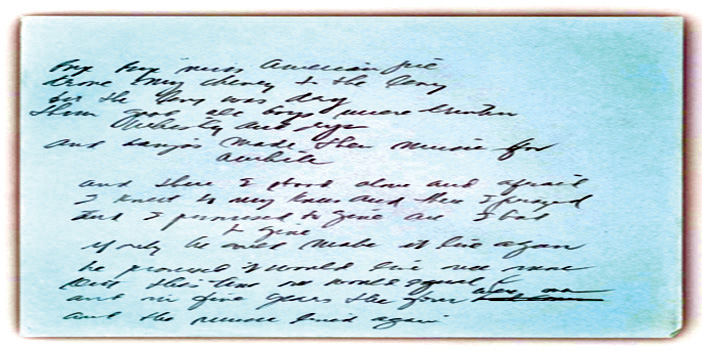 Bye Bye miss American pie
drove my chevy to the levy
but the levy was dry
Them good ole boys were drinkin
Whiskey and rye
and singin made their music for
awhile
and there I stood alone and afraid
I knelt to my knees and there I prayed
and I promised to give all I had
to give
if only he would make it live again
he promised it would live once more
but this time
and in five years the four
and the music lived again